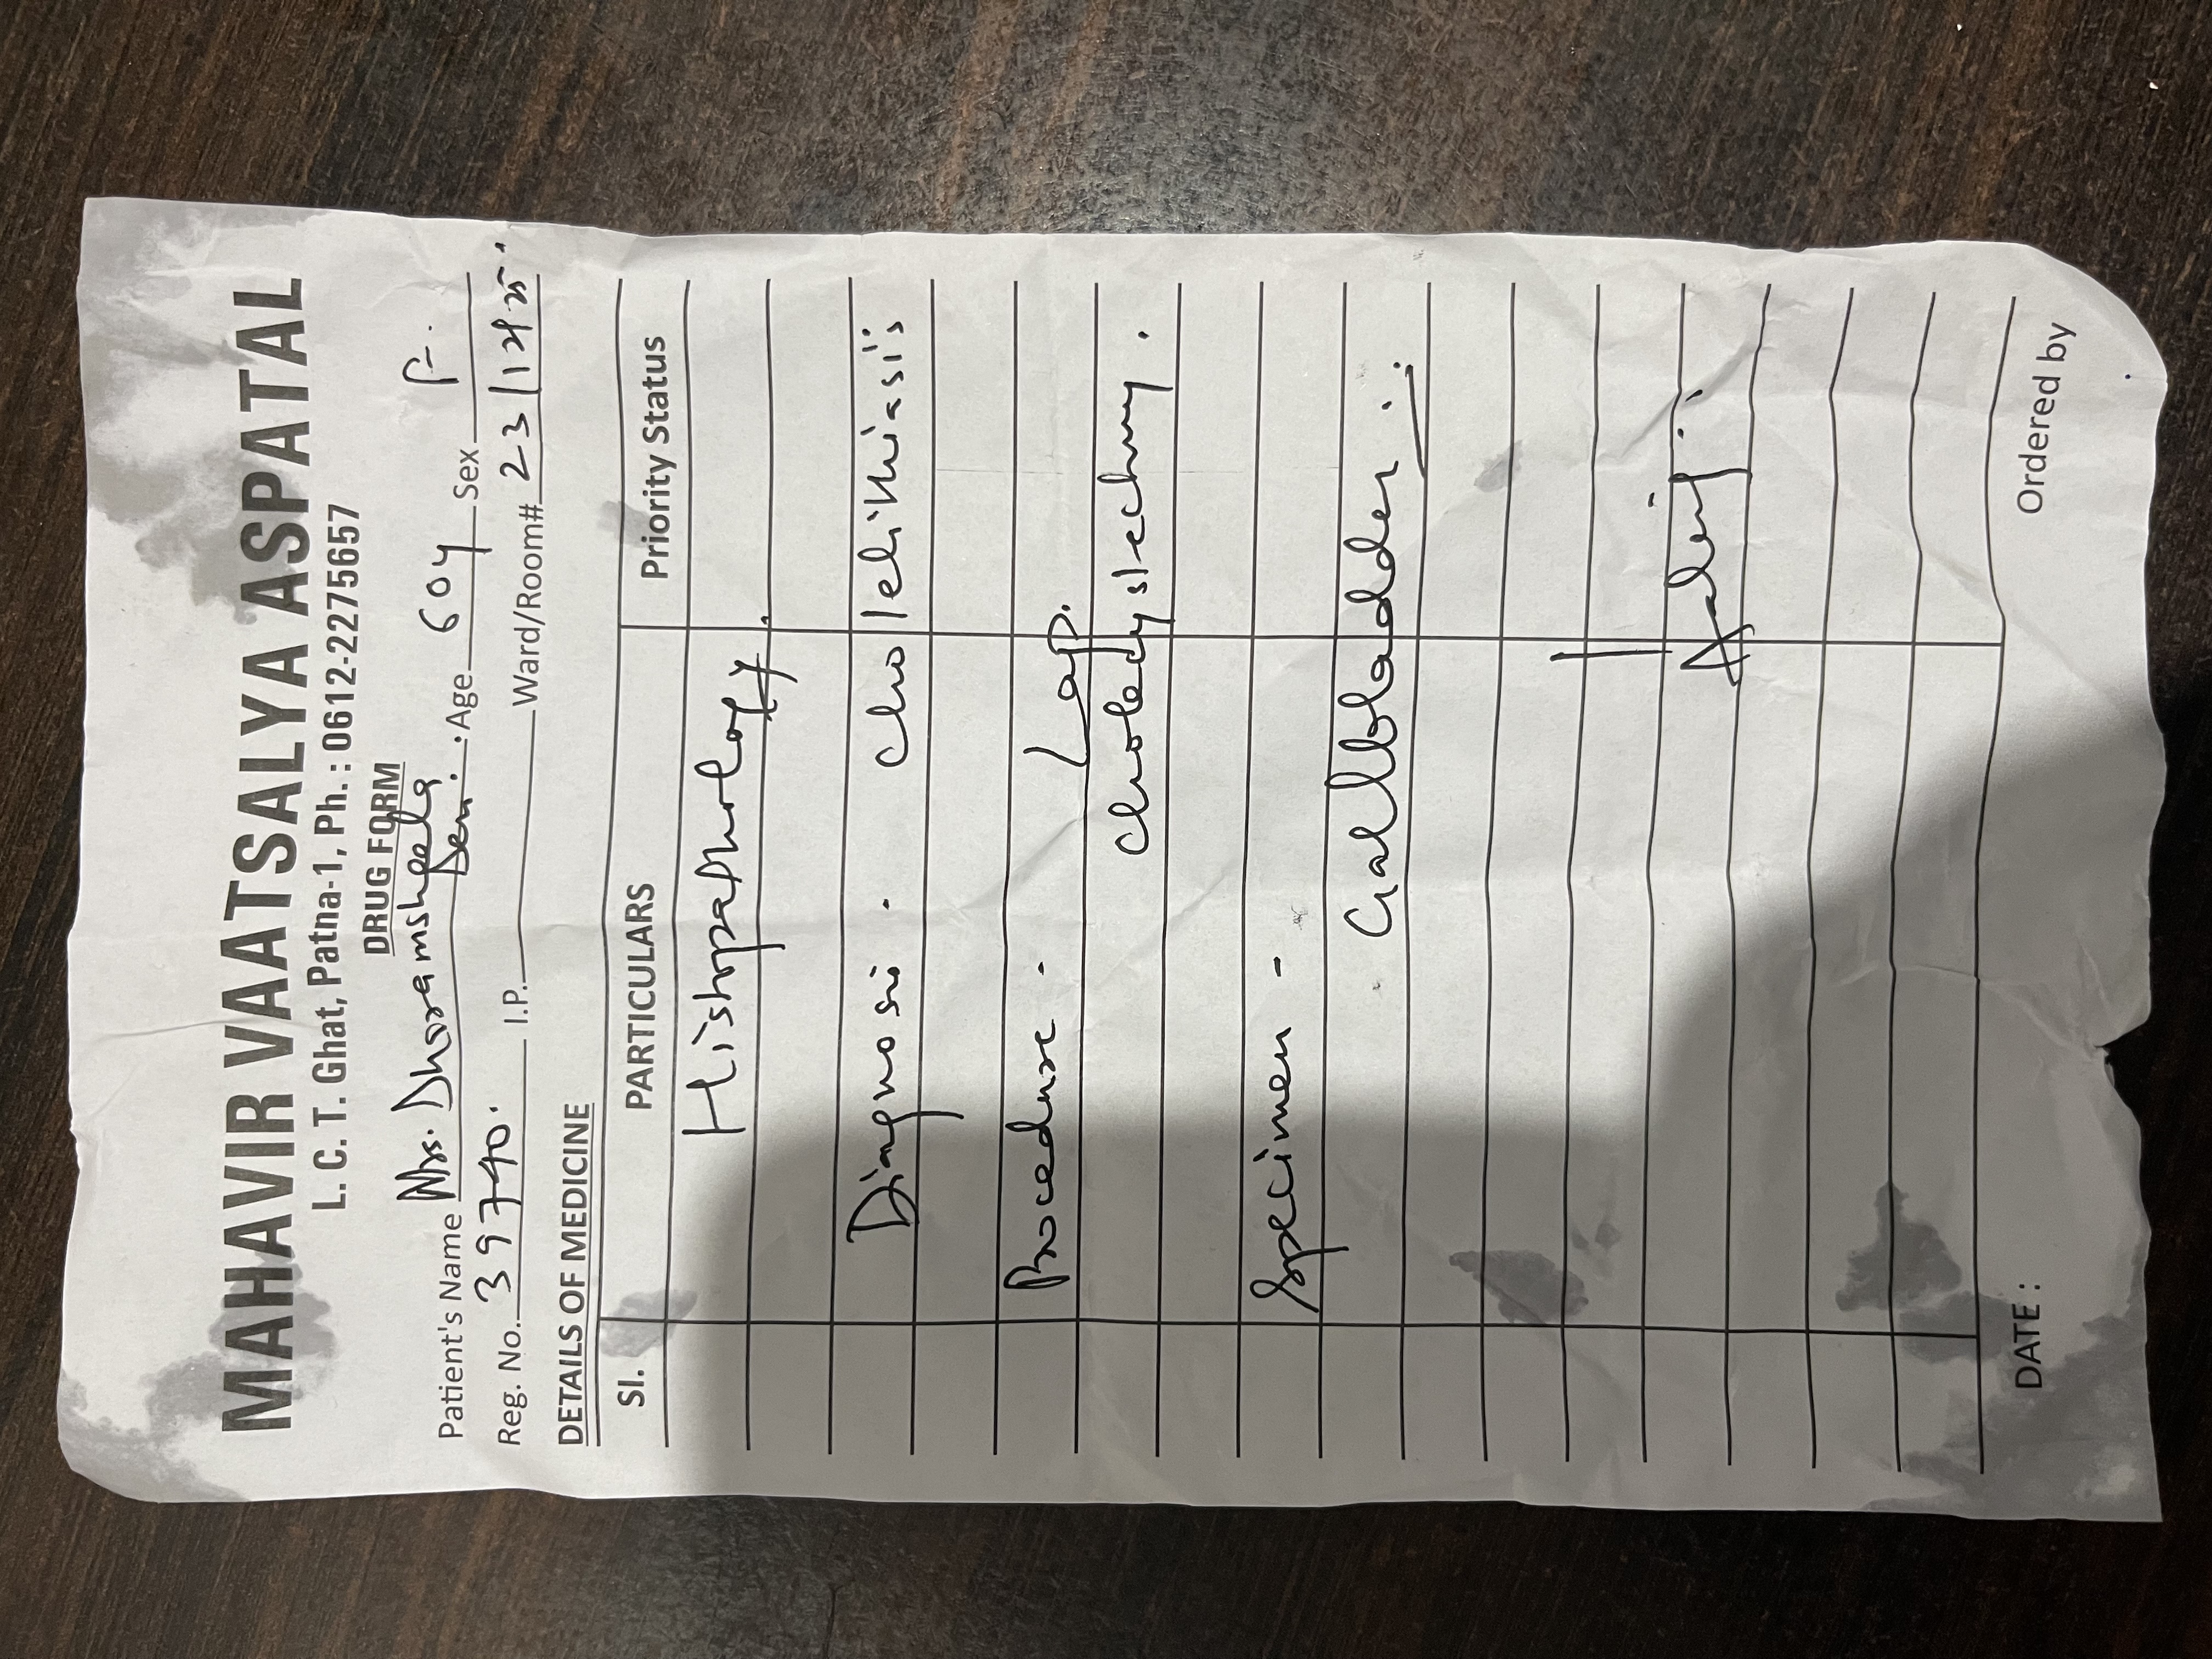 MAHAVIR VAATSALYA ASPATAL
L. C. T. Ghat, Patna-1, Ph. : 0612-2275657
DRUG FORM
Patient's Name Mrs. Dharamsheela Devi. Age 60y Sex F.
Reg. No. 39740. I.P. Ward/Room# 23/12/25.
DETAILS OF MEDICINE
Sl. PARTICULARS Priority Status
Histopathology.
Diagnosis - Cholelithiasis
Procedure - Lap.
Cholecystectomy.
Specimen -
Gallbladder.
DATE : Ordered by